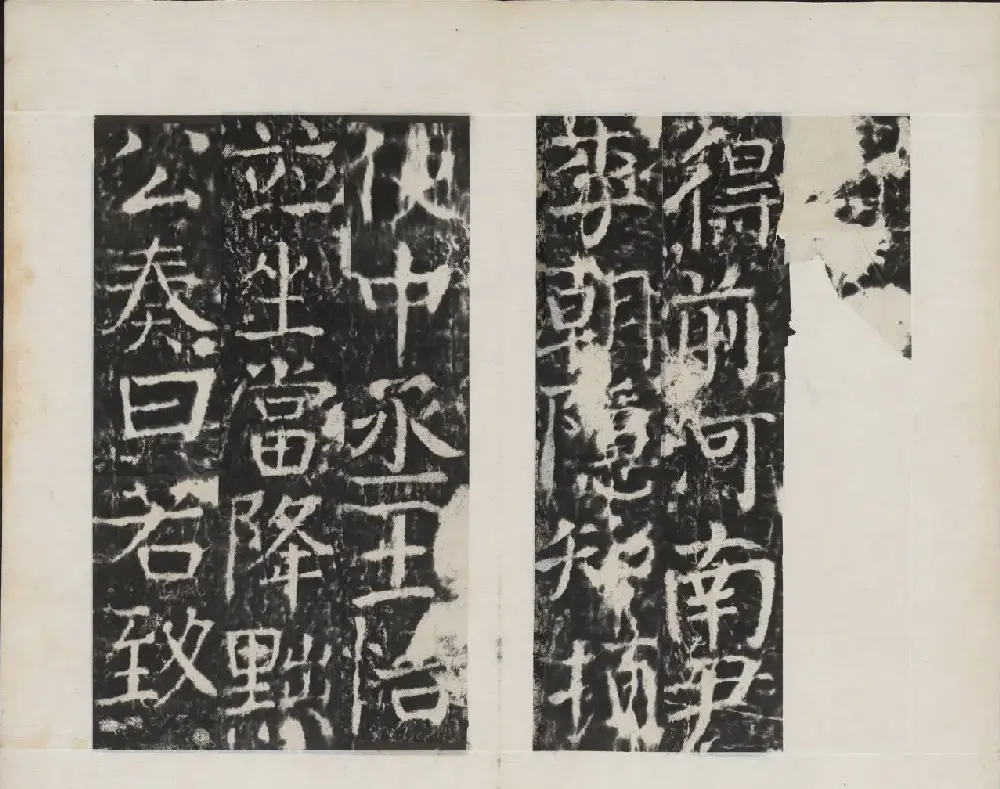 得前河南尹
李朝隱知頓
使中丞王怡
並坐當降黜
公奏曰若致